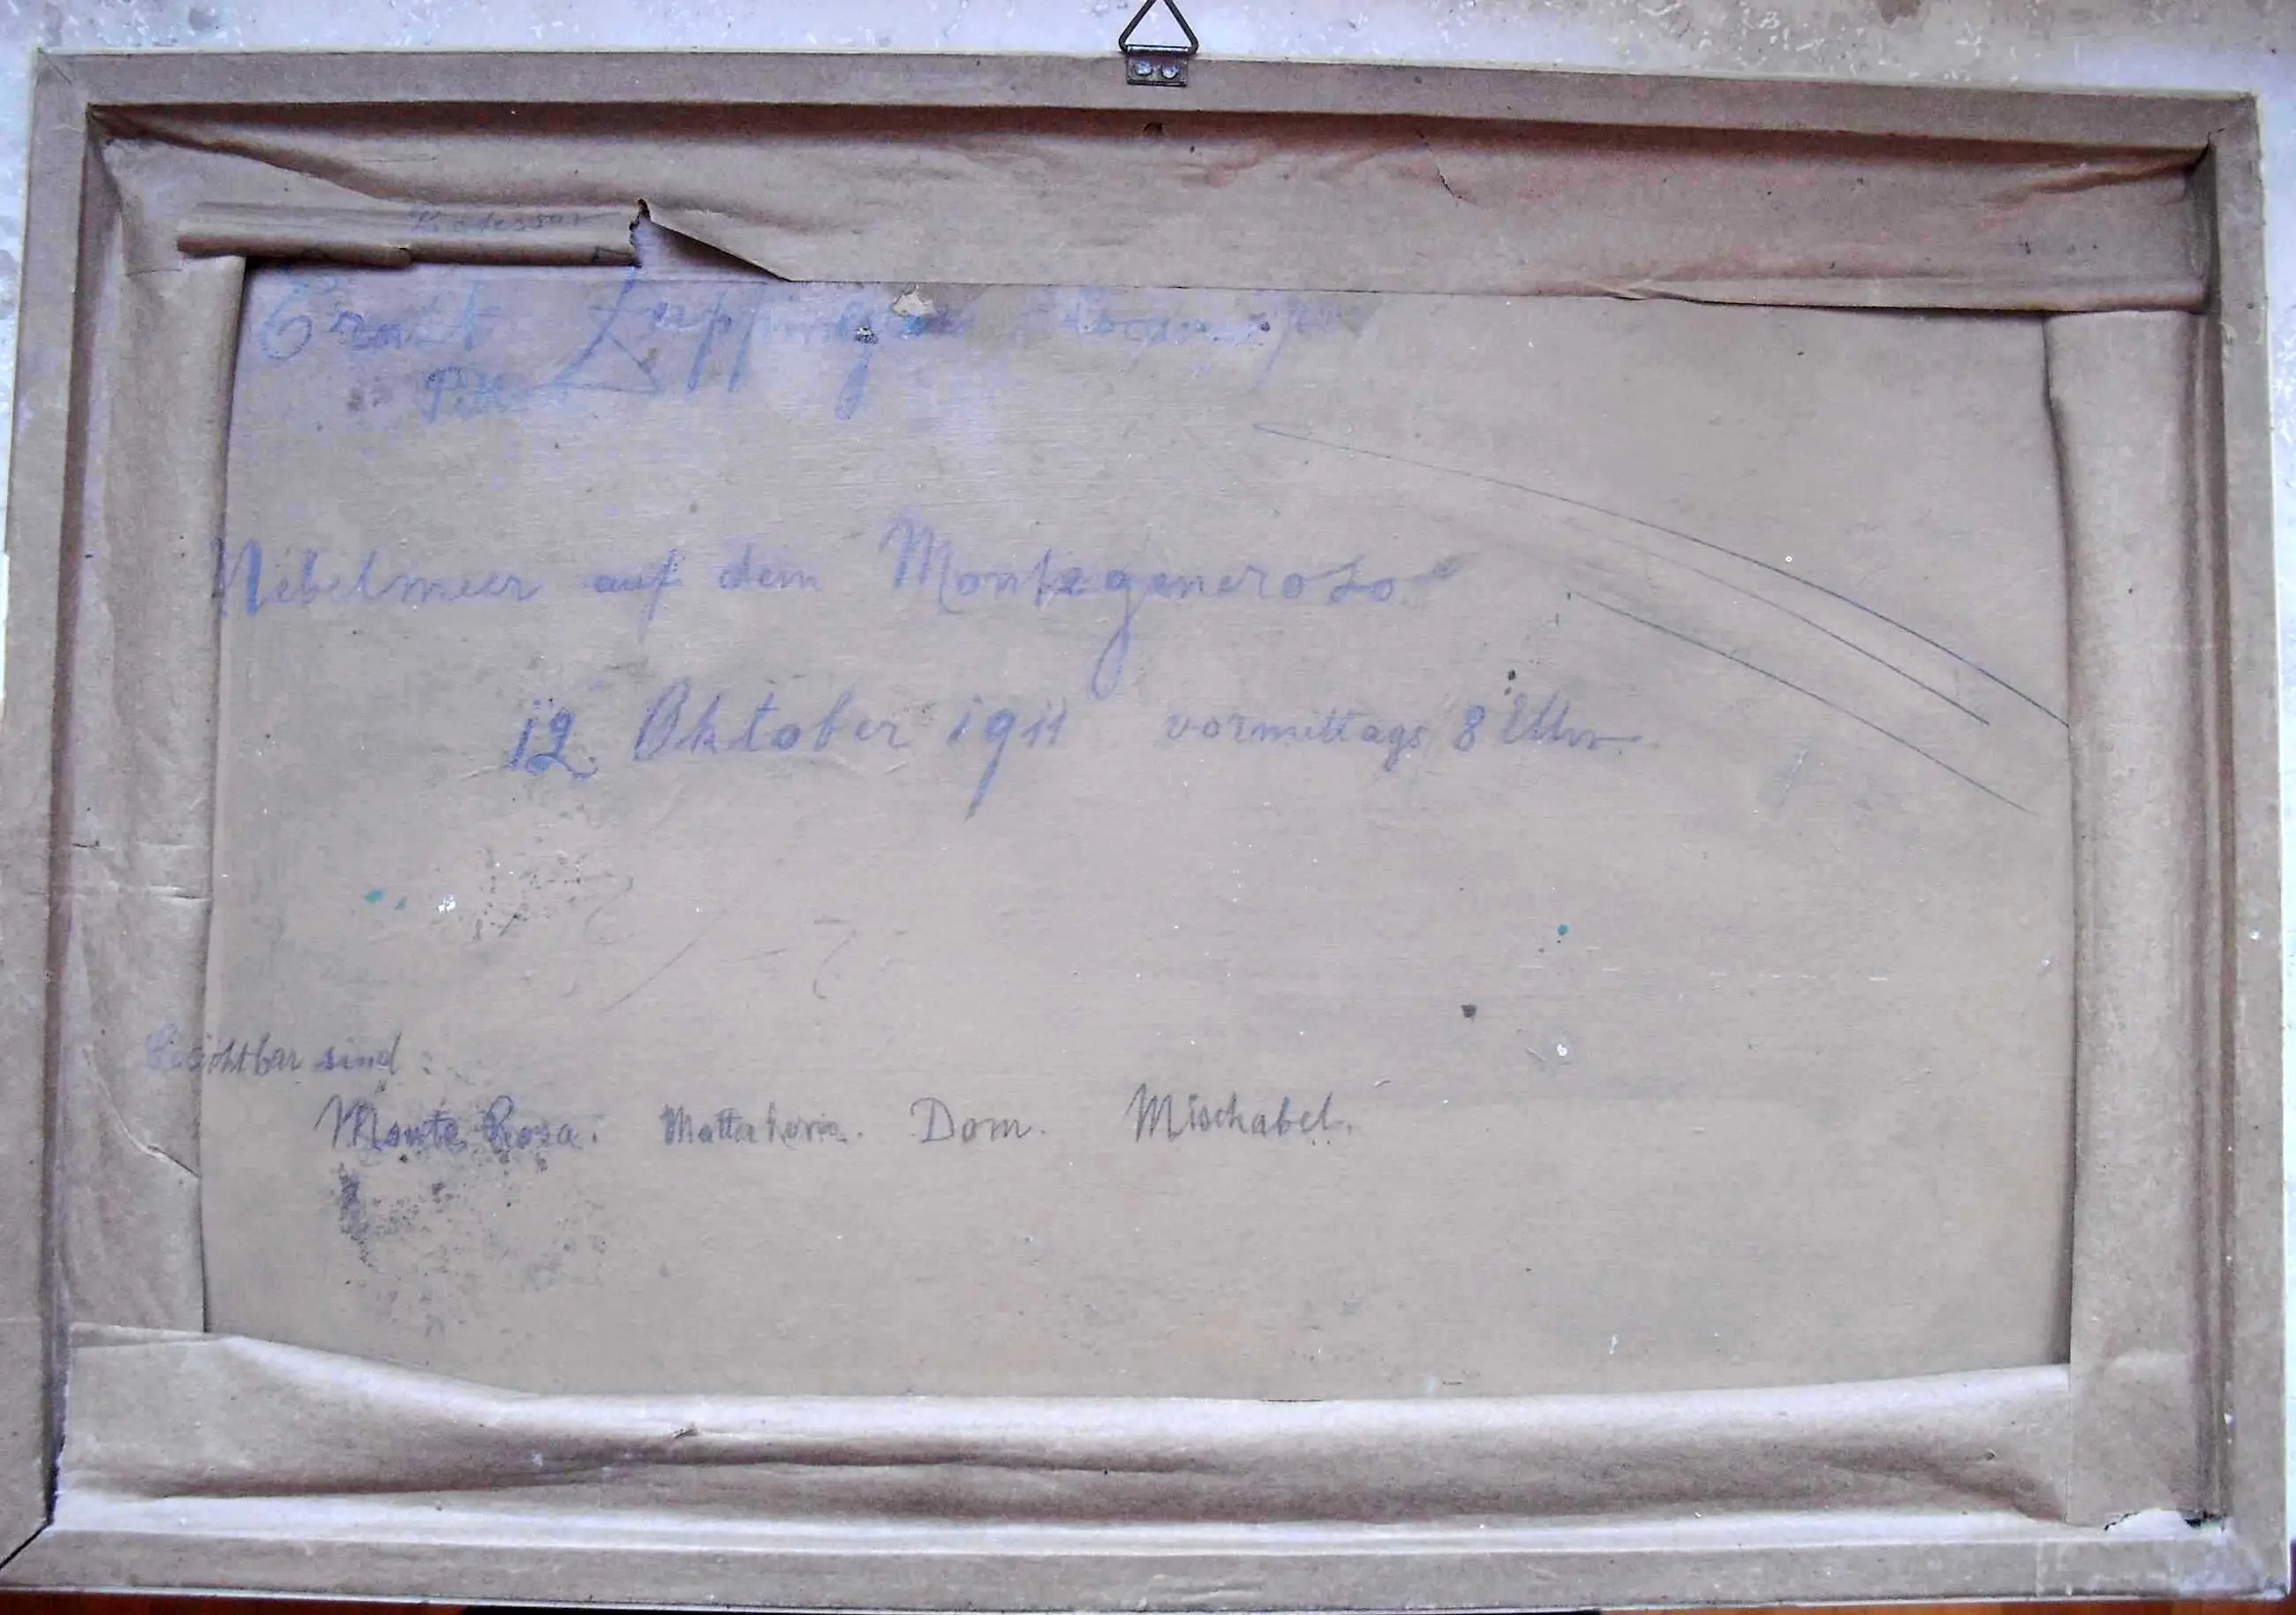 Professor
Ernst Zuppinger
Nebelmeer auf dem Monte generoso
12. Oktober 1911 vormittags 8 Uhr
Sichtbar sind:
Monte Rosa. Dom. Mischabel.